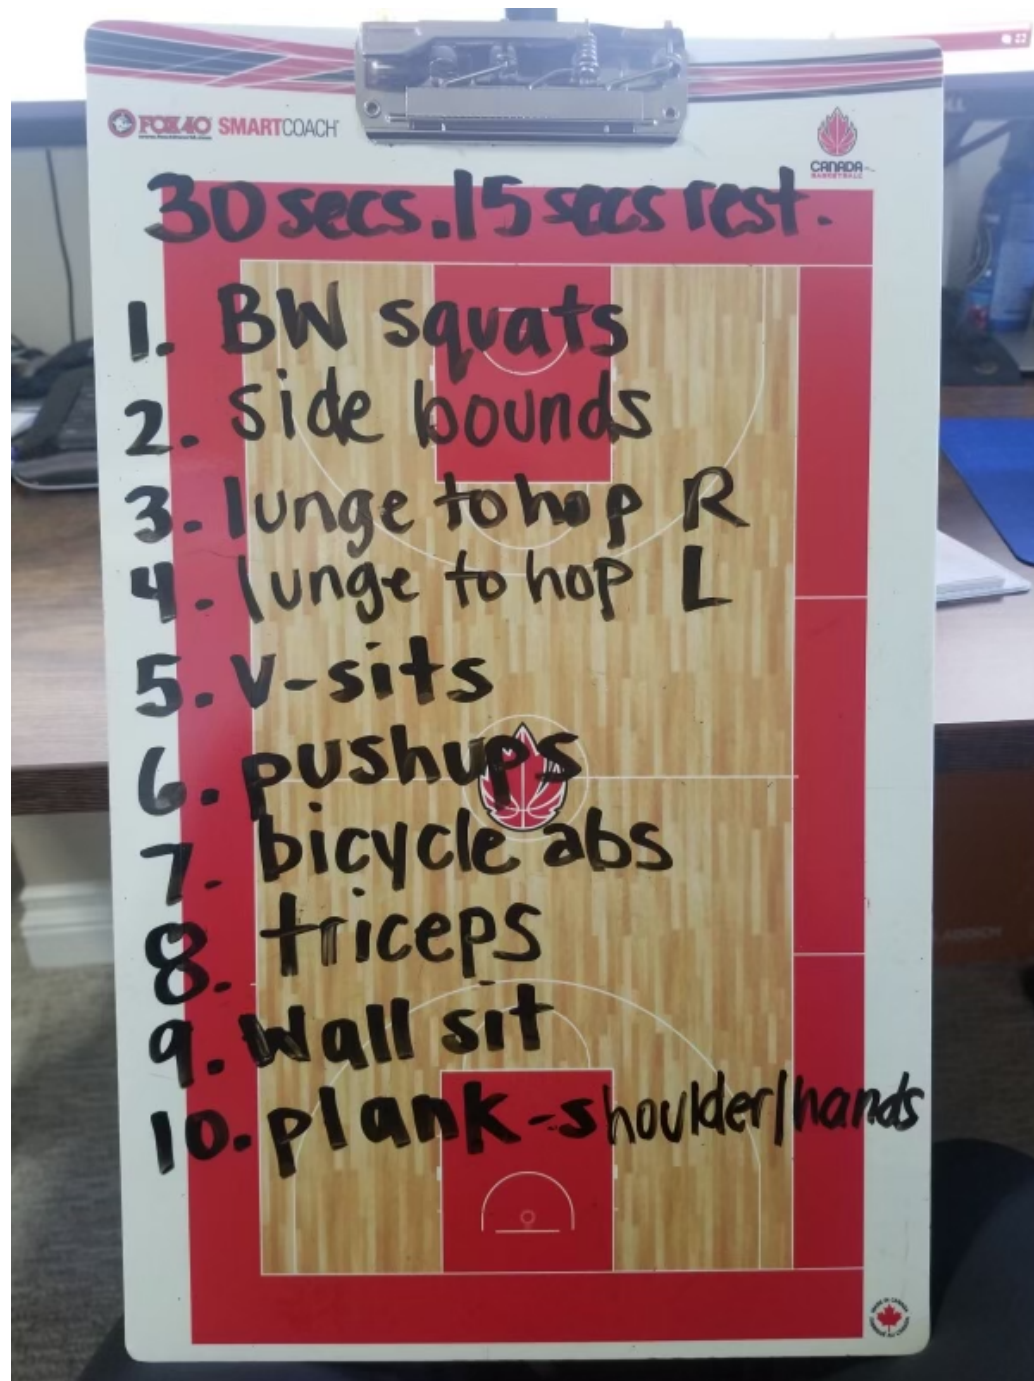 FOX40 SMARTCOACH
CANADA
BASKETBALL
30 secs. 15 secs rest.
1. BW squats
2. side bounds
3. lunge to hop R
4. lunge to hop L
5. v-sits
6. pushups
7. bicycle abs
8. triceps
9. Wall sit
10. plank - shoulder/hands